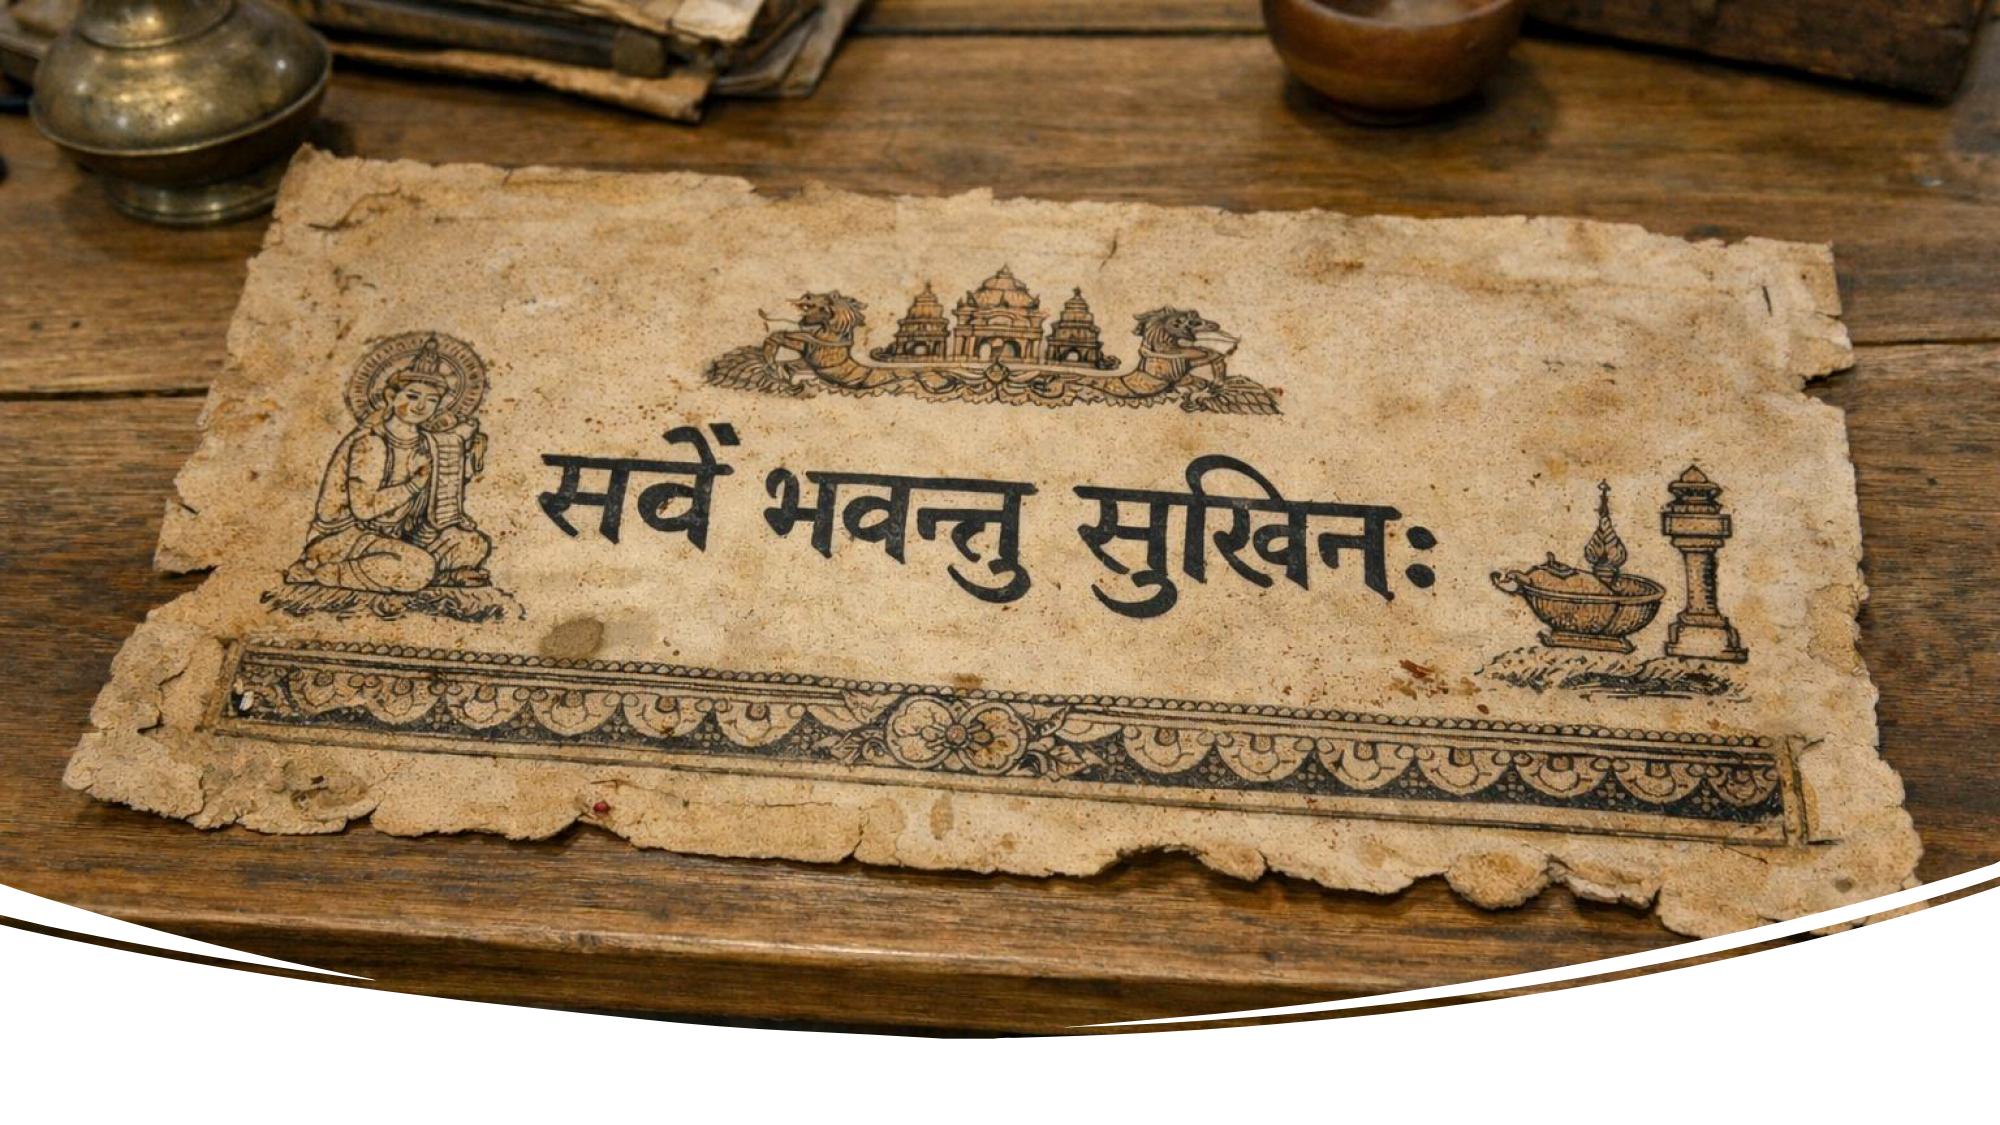 सवें भवन्तु सुखिनः